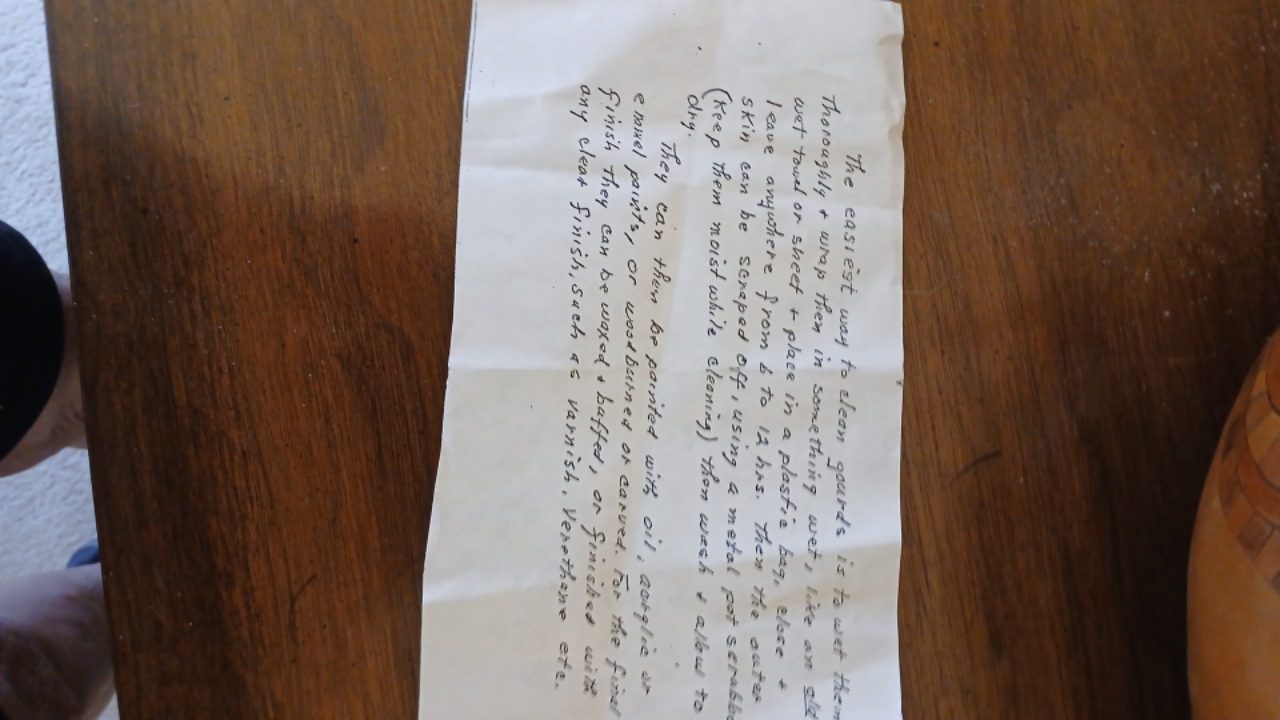 The easiest way to clean gourds is to wet them
Thoroughly & wrap then in something wet, like an old
wet towel or sheet & place in a plastic bag, close &
leave anywhere from 6 to 12 hrs. Then the outer
skin can be scraped off, using a metal pot scrubbe
(Keep them moist while cleaning) then wash & allow to
dry.
They can then be painted with oil, acrylic or
enamel paints, or woodburned or carved. For the final
finish they can be waxed & buffed, or finished with
any clear finish, such as varnish, Verethane etc.